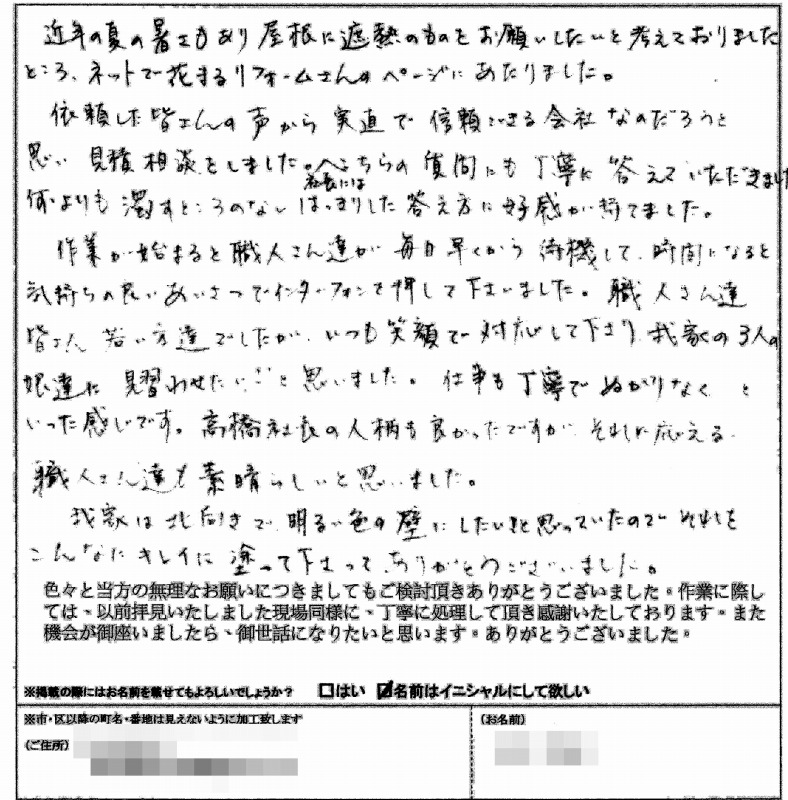 近年の夏の暑さもあり屋根に遮熱のものをお願いしたいと考えておりました
ところ、ネットで花まるリフォームさんのページにあたりました。
依頼した皆さんの声から実直で信頼できる会社なのだろうと
思い見積相談をしました。こちらの質問にも丁寧に答えていただきました
社長には
何よりも濁すところのないはっきりした答え方に好感が持てました。
作業が始まると職人さん達が毎日早くから待機して、時間になると
気持ちの良いあいさつでインターフォンを押して下さいました。職人さん達
皆さん若い方達でしたが、いつも笑顔で対応して下さり、我家の3人の
娘達に見習わせたいと思いました。仕事も丁寧でぬかりなくと
いった感じです。高橋社長の人柄も良かったですが、それに応える
職人さん達も素晴らしいと思いました。
我家は北向きで、明るい色の壁にしたいと思っていたのでそれを
こんなにキレイに塗って下さって、ありがとうございました。
色々と当方の無理なお願いにつきましてもご検討頂きありがとうございました。作業に際し
ては、以前拝見いたしました現場同様に、丁寧に処理して頂き感謝いたしております。また
機会が御座いましたら、御世話になりたいと思います。ありがとうございました。
※掲載の際にはお名前を載せてもよろしいでしょうか? □はい ☑名前はイニシャルにして欲しい
※市・区以降の町名・番地は見えないように加工致します
(ご住所)
(お名前)